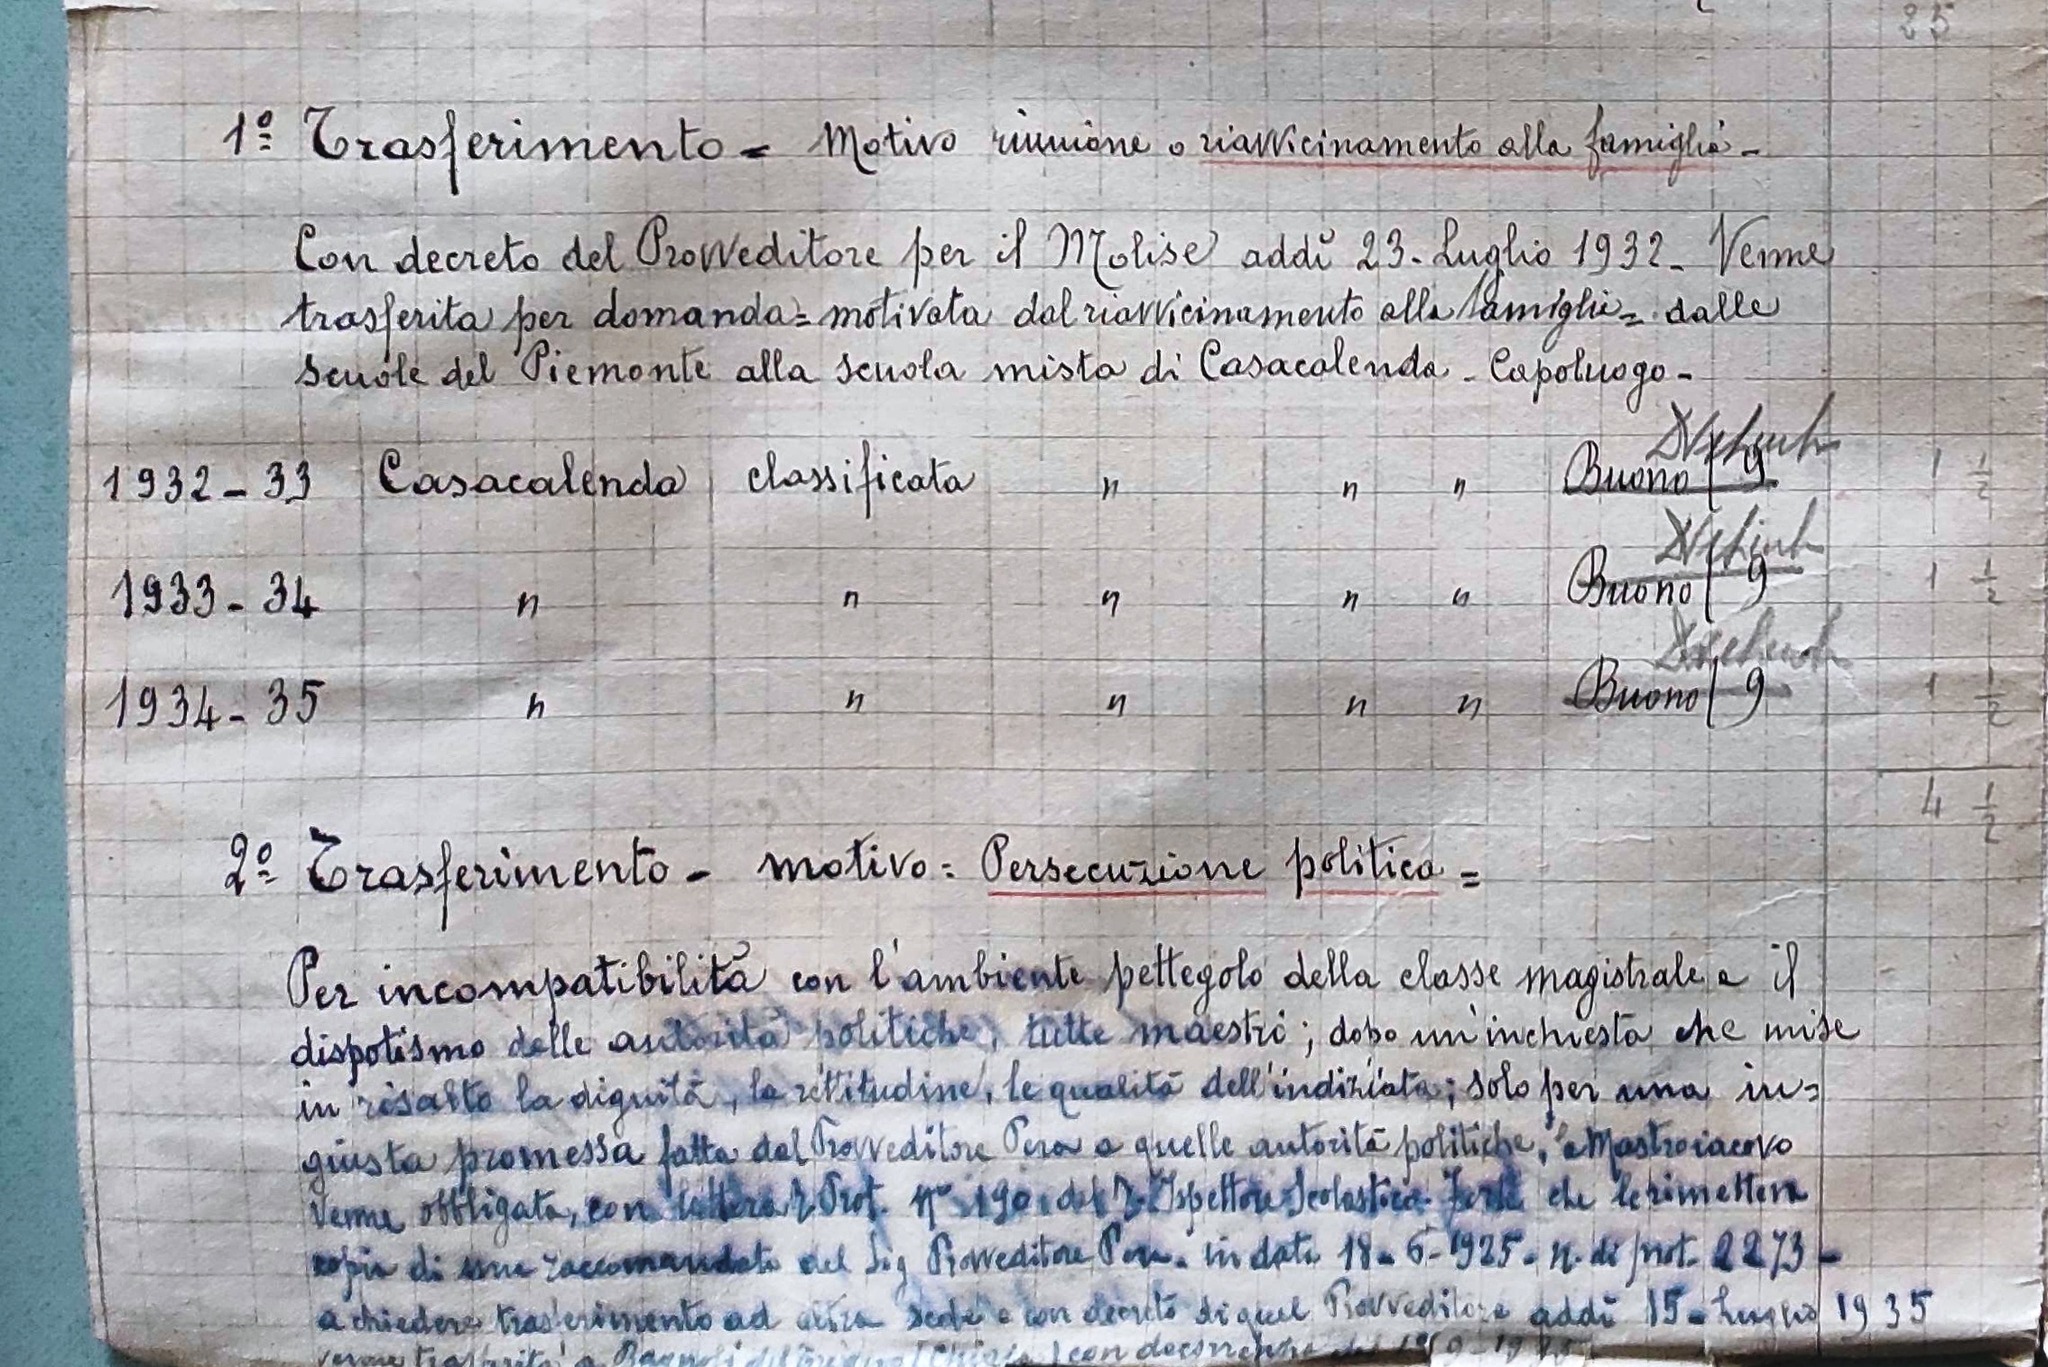 25
1º Trasferimento = Motivo riunione o riavvicinamento alla famiglia -
Con decreto del Provveditore per il Molise addì 23 - Luglio 1932 - Venne
trasferita per domanda = motivata dal riavvicinamento alla famiglia = dalle
scuole del Piemonte alla scuola mista di Casacalenda - Capoluogo -
1932 - 33 Casacalenda classificata " " " Buono / 9 1 1/2
1933 - 34 " " " " " Buono / 9 1 1/2
1934 - 35 " " " " " Buono / 9 1 1/2
4 1/2
2º Trasferimento - motivo = Persecuzione politica =
Per incompatibilità con l'ambiente pettegolo della classe magistrale e il
dispotismo delle autorità politiche, tutte maestri; dopo un'inchiesta che mise
in risalto la dignità, la rettitudine, le qualità dell'indiziata; solo per una in=
giusta promessa fatta dal Provveditore Pera a quelle autorità politiche, Mastroiacovo
venne obbligata, con lettera Prot. nº 190 del Ispettore Scolastico che le rimetteva
copia di una raccomandata del Sig Provveditore Pera in data 18 - 6 - 1925 - n. di prot. 2273 -
a chiedere trasferimento ad altra sede e con decreto di quel Provveditore addì 15 - Luglio 1935
venne trasferita a